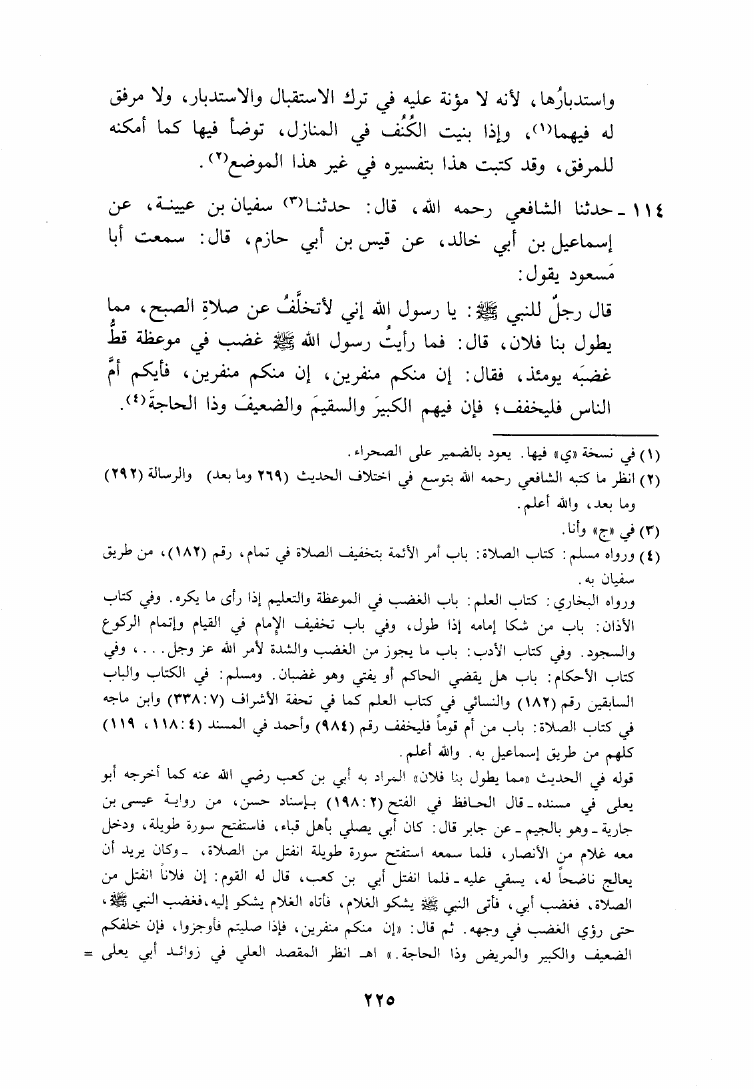 واستدبارُها، لأنه لا مؤنة عليه في ترك الاستقبال والاستدبار، ولا مرفق
له فيهما(١)، وإذا بنيت الكُنُف في المنازل، توضأ فيها كما أمكنه
للمرفق، وقد كتبت هذا بتفسيره في غير هذا الموضع(٢).
١١٤ - حدثنا الشافعي رحمه الله، قال: حدثنا(٣) سفيان بن عيينة، عن
إسماعيل بن أبي خالد، عن قيس بن أبي حازم، قال: سمعت أبا
مَسعود يقول:
قال رجلٌ للنبي ﷺ: يا رسول الله إني لأتخلَّفُ عن صلاةِ الصبح، مما
يطول بنا فلان، قال: فما رأيتُ رسول الله ﷺ غضب في موعظة قطُّ
غضبَه يومئذ، فقال: إن منكم منفرين، إن منكم منفرين، فأيكم أمَّ
الناس فليخفف؛ فإن فيهم الكبيرَ والسقيمَ والضعيفَ وذا الحاجةَ(٤).
(١) في نسخة «ي» فيها. يعود بالضمير على الصحراء.
(٢) انظر ما كتبه الشافعي رحمه الله بتوسع في اختلاف الحديث (٢٦٩ وما بعد) والرسالة (٢٩٢)
وما بعد، والله أعلم.
(٣) في «ج» وأنا.
(٤) ورواه مسلم: كتاب الصلاة: باب أمر الأئمة بتخفيف الصلاة في تمام، رقم (١٨٢)، من طريق
سفيان به.
ورواه البخاري: كتاب العلم: باب الغضب في الموعظة والتعليم إذا رأى ما يكره. وفي كتاب
الأذان: باب من شكا إمامه إذا طول، وفي باب تخفيف الإمام في القيام وإتمام الركوع
والسجود. وفي كتاب الأدب: باب ما يجوز من الغضب والشدة لأمر الله عز وجل...، وفي
كتاب الأحكام: باب هل يقضي الحاكم أو يفتي وهو غضبان. ومسلم: في الكتاب والباب
السابقين رقم (١٨٢) والنسائي في كتاب العلم كما في تحفة الأشراف (٧: ٣٣٨) وابن ماجه
في كتاب الصلاة: باب من أم قوماً فليخفف رقم (٩٨٤) وأحمد في المسند (٤: ١١٨، ١١٩)
كلهم من طريق إسماعيل به. والله أعلم.
قوله في الحديث «مما يطول بنا فلان» المراد به أبي بن كعب رضي الله عنه كما أخرجه أبو
يعلى في مسنده - قال الحافظ في الفتح (٢: ١٩٨) بإسناد حسن، من رواية عيسى بن
جارية - وهو بالجيم - عن جابر قال: كان أبي يصلي بأهل قباء، فاستفتح سورة طويلة، ودخل
معه غلام من الأنصار، فلما سمعه استفتح سورة طويلة انفتل من الصلاة، - وكان يريد أن
يعالج ناضحاً له، يسقي عليه - فلما انفتل أبي بن كعب، قال له القوم: إن فلاناً انفتل من
الصلاة، فغضب أبي، فأتى النبي ﷺ يشكو الغلام، فأتاه الغلام يشكو إليه، فغضب النبي ﷺ،
حتى رؤي الغضب في وجهه. ثم قال: «إن منكم منفرين، فإذا صليتم فأوجزوا، فإن خلفكم
الضعيف والكبير والمريض وذا الحاجة.» اهـ انظر المقصد العلي في زوائد أبي يعلى =
٢٢٥